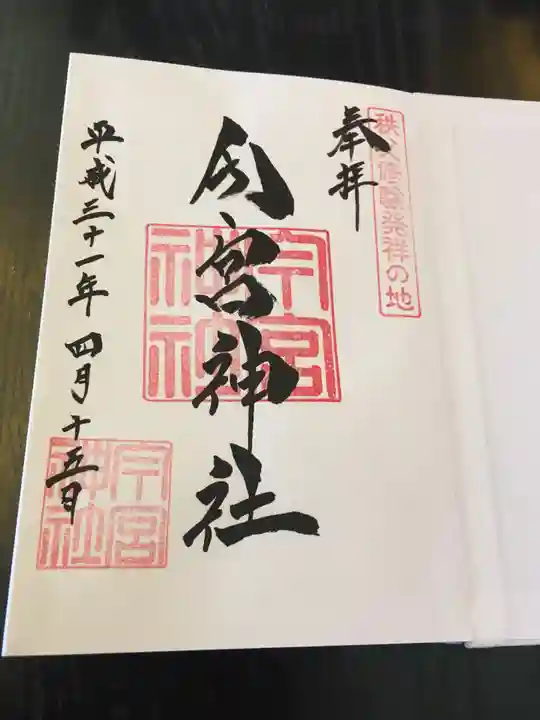 秩父修験発祥の地
奉拝
今宮神社
今宮神社
平成三十一年 四月十五日
今宮神社